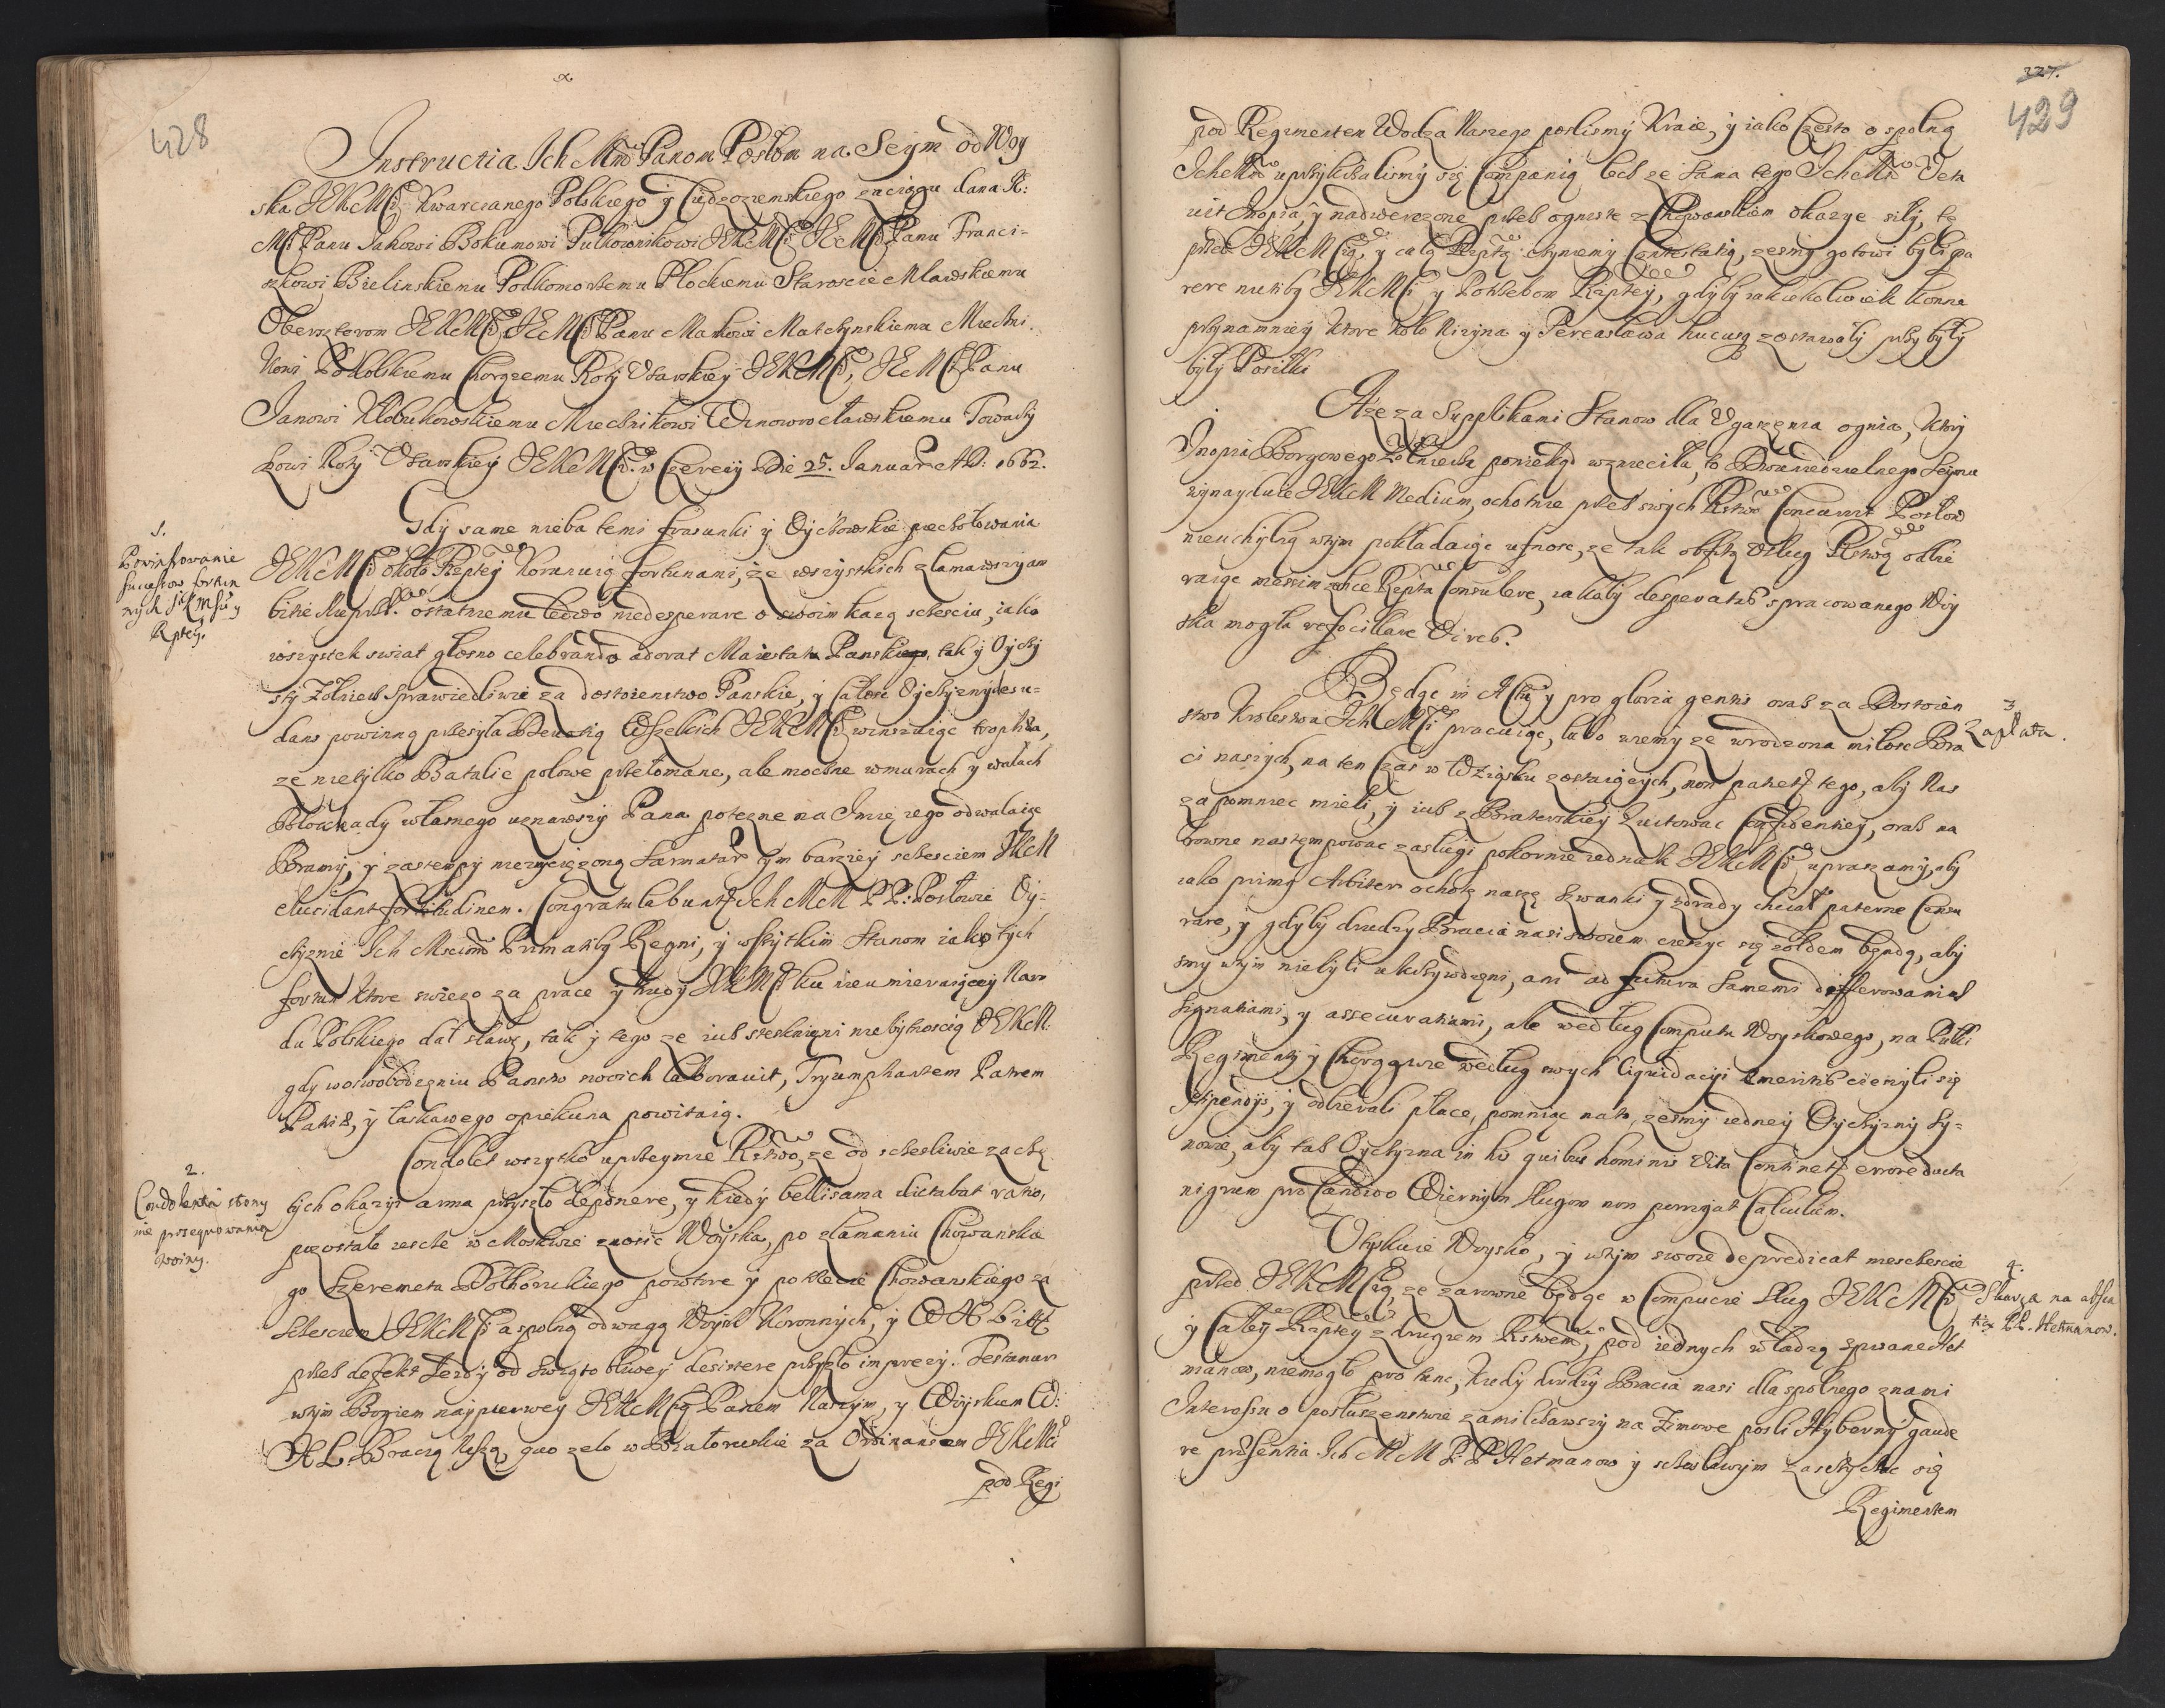 428
Instructia Ich Mciom Panom Posłom na Seym od Woy
ska JEKMCi Kwarcianego Polskiego y Cudzoziemskiego zaciągu dana JE:
MCi Panu Janowi Bokumowi Pułkownikowi JEKMCi JEMCi Panu Franci-
szkowi Bielinskiemu Podkomorzemu Płockiemu Staroscie Mławskiemu
Obersztorom JEKMCi JEMCi Panu Markowi Matczynskiemu Miecni
kowi Podolskiemu Chorązemu Roty Usarskiey JEKMCi, JEMCi Panu
Janowi Kłobukowskiemu Miecznikowi Winowrocławskiemu Towarzy
szowi Roty Usarskiey JEKMCi w Czereij Die 25. Januar AD: 1662.
1.
Powinszowanie
sucessow fortun
nych JKMsci y
Rptey.
Gdy same nieba temi frasunki y Oyczowskie pieczołowania
JEKMCi około Rzeptey koronuią fortunami, że wszystkich złamawszy am
bitie ostatniemu ledwo niedesperare o swoim każą sczesciu, iako
wszystek swiat głosno celebrando adorat Maiestatu Panskiego, tak y Oyczy
sty Zołnierz Sprawiedliwie za dostoienstwo Panskie, y całosc Oyczyzny desu-
dans powinną przesyła Wszelkich JEKMCi winszuiąc trophea,
ze nietylko Batalie polowe przełomane, ale mocne w murach y wałach
własnego uznawszy Pana potęzne na Imię iego odwalaią
Bramy, y zastempy niezwyciężoną Sarmatar tym barziey sczesciem JKM
elucidant fortitudinem. Congratulabuntur Ich MM PP: Posłowie Oy-
czyznie Ich Msciom Primatibus Regni, y wszytkim Stanom iako tych
fortun ktore swiezo za prace y trudy JKMCi ku nieumieraiącey Naro
du Polskiego dał sławę, tak y tego ze iusz stesknieni niebytnoscią JEKM:
gdy w oswobodzęniu Panstw swoich laborauit, Tryumphantem Patrem
Patriæ, y łaskawego opiekuna powitaią.
2.
Condolentia strony
nie prosequowania
woiny.
Condolet wszytko uprzeymie Rzstwo, ze od sczesliwie zaczę
tych okazyi arma przyszło deponere, y kiedy belli sama dictabat ratio,
pozostałe iescze w Moskwie znosic Woyska, po złamaniu Chowanskie
go Szeremeta Dołhorukiego powtore y potrzecie Chowanskiego za
sczesciem JEKMCi a spolną odwagą Woysk Koronnych, y W X Litt
przez defekt Lezdy od swięto bliwey desistere przyszło imprezy. Testamur
w tym Bogiem naypierwey JEKMCią Panem Naszym, y Woyskiem W:
X L. Bracią Naszą, quo zelo w Białoruskie za Ordinansem JEKMCi
pod Regi
327.
429
pod Regimentem Wodza Naszego poslismy Kraie, y iako często o spolną
IchMciow uprzykrzalismy się Companią lecz ze sama tego IchMciow Veta
uit Inopia, y nadwerezone przez ogniste z Chowanskim okazye siły, tę
przed JEKMCią, y całą Rzeptą czyniemy Contestatią, zesmy gotowi byli pa
rere nutibus JEKMCi y Potrzebom Rzeptey, gdyby iakiekolwiek konne
przynamniey ktore koło Nizyna y Pereasławia hucusq zostawały przybyły
były Posiłki
Aze za Supplikami Stanow dla Ugaszęnia ognia, ktory
Inopia Borgowego Zołnierza poniekąd wznieciła, to Dwuniedzielnego Seymu
wynayduie JEKM Medium, ochotnie przez swych Rzstwo Concurrit Posłow
nieuchylną w tym pokładaiąc ufnosc, ze tak obfitą usług Rzstwa odbie
raiąc messim zechce Rzepta Consulere, iakoby desperatas spracowanego Woy
ska mogła refocillare Vires.
3
Zapłata.
Będąc in Actu y pro gloria gentis oraz za Dostoien
stwo Krolestwa Ich MCi pracuiąc, lubo wiemy ze wrodzona miłosc Bra
ci naszych, na ten czas w Związku zostaiących, non patietur tego, aby Nas
zapomniec mieli, y iusz z Braterskiey Luctowac Confidentiey, oraz na
rowne następowac zasługi pokornie iednak JEKMCi upraszamy, aby
iako primus Arbiter ochotę naszę szwanki y zdrady chciał paterne Censu
rare, y gdyby drudzy Bracia nasi swoiem cieszyc się zołdem będą, aby
smy w tym niebyli ukrzywdzeni, ani ad futura samemi differowani as
signatiami, y assecuratiami, ale według Computu Woyskowego, na Pułki
Regimenty y Chorągwie według swych liquidacyi emeritis cieszyli się
stipendijs, y odbierali płace, pomniąc na to, zesmy iedney Oyczyzny Sy-
nowie, aby tasz Oyczyzna in his quibus hominis vita Continetur errore ducta
nigrum pro Candido Wiernym sługom non porrigat Calculum.
4.
Skarga na absen
tią PP. Hetmanow.
Utyskuie Woysko, y w tym swoie depredicat niesczescie
przed JEKMCią, ze zarowne będąc w Compucie sług JEKMCi
y Całey Rzeptey z drugiem Rzstwem, pod iednych władzą zpwane Het
manow, niemogło pro tunc, kiedy drudzy Bracia nasi dla spolnego znami
Interessu o posłuszenstwie zamilczawszy na Zimowe posli Hyberny gaude
re præsentia Ich MM PP Hetmanow y sczesliwym zasczycac się
Regimentem